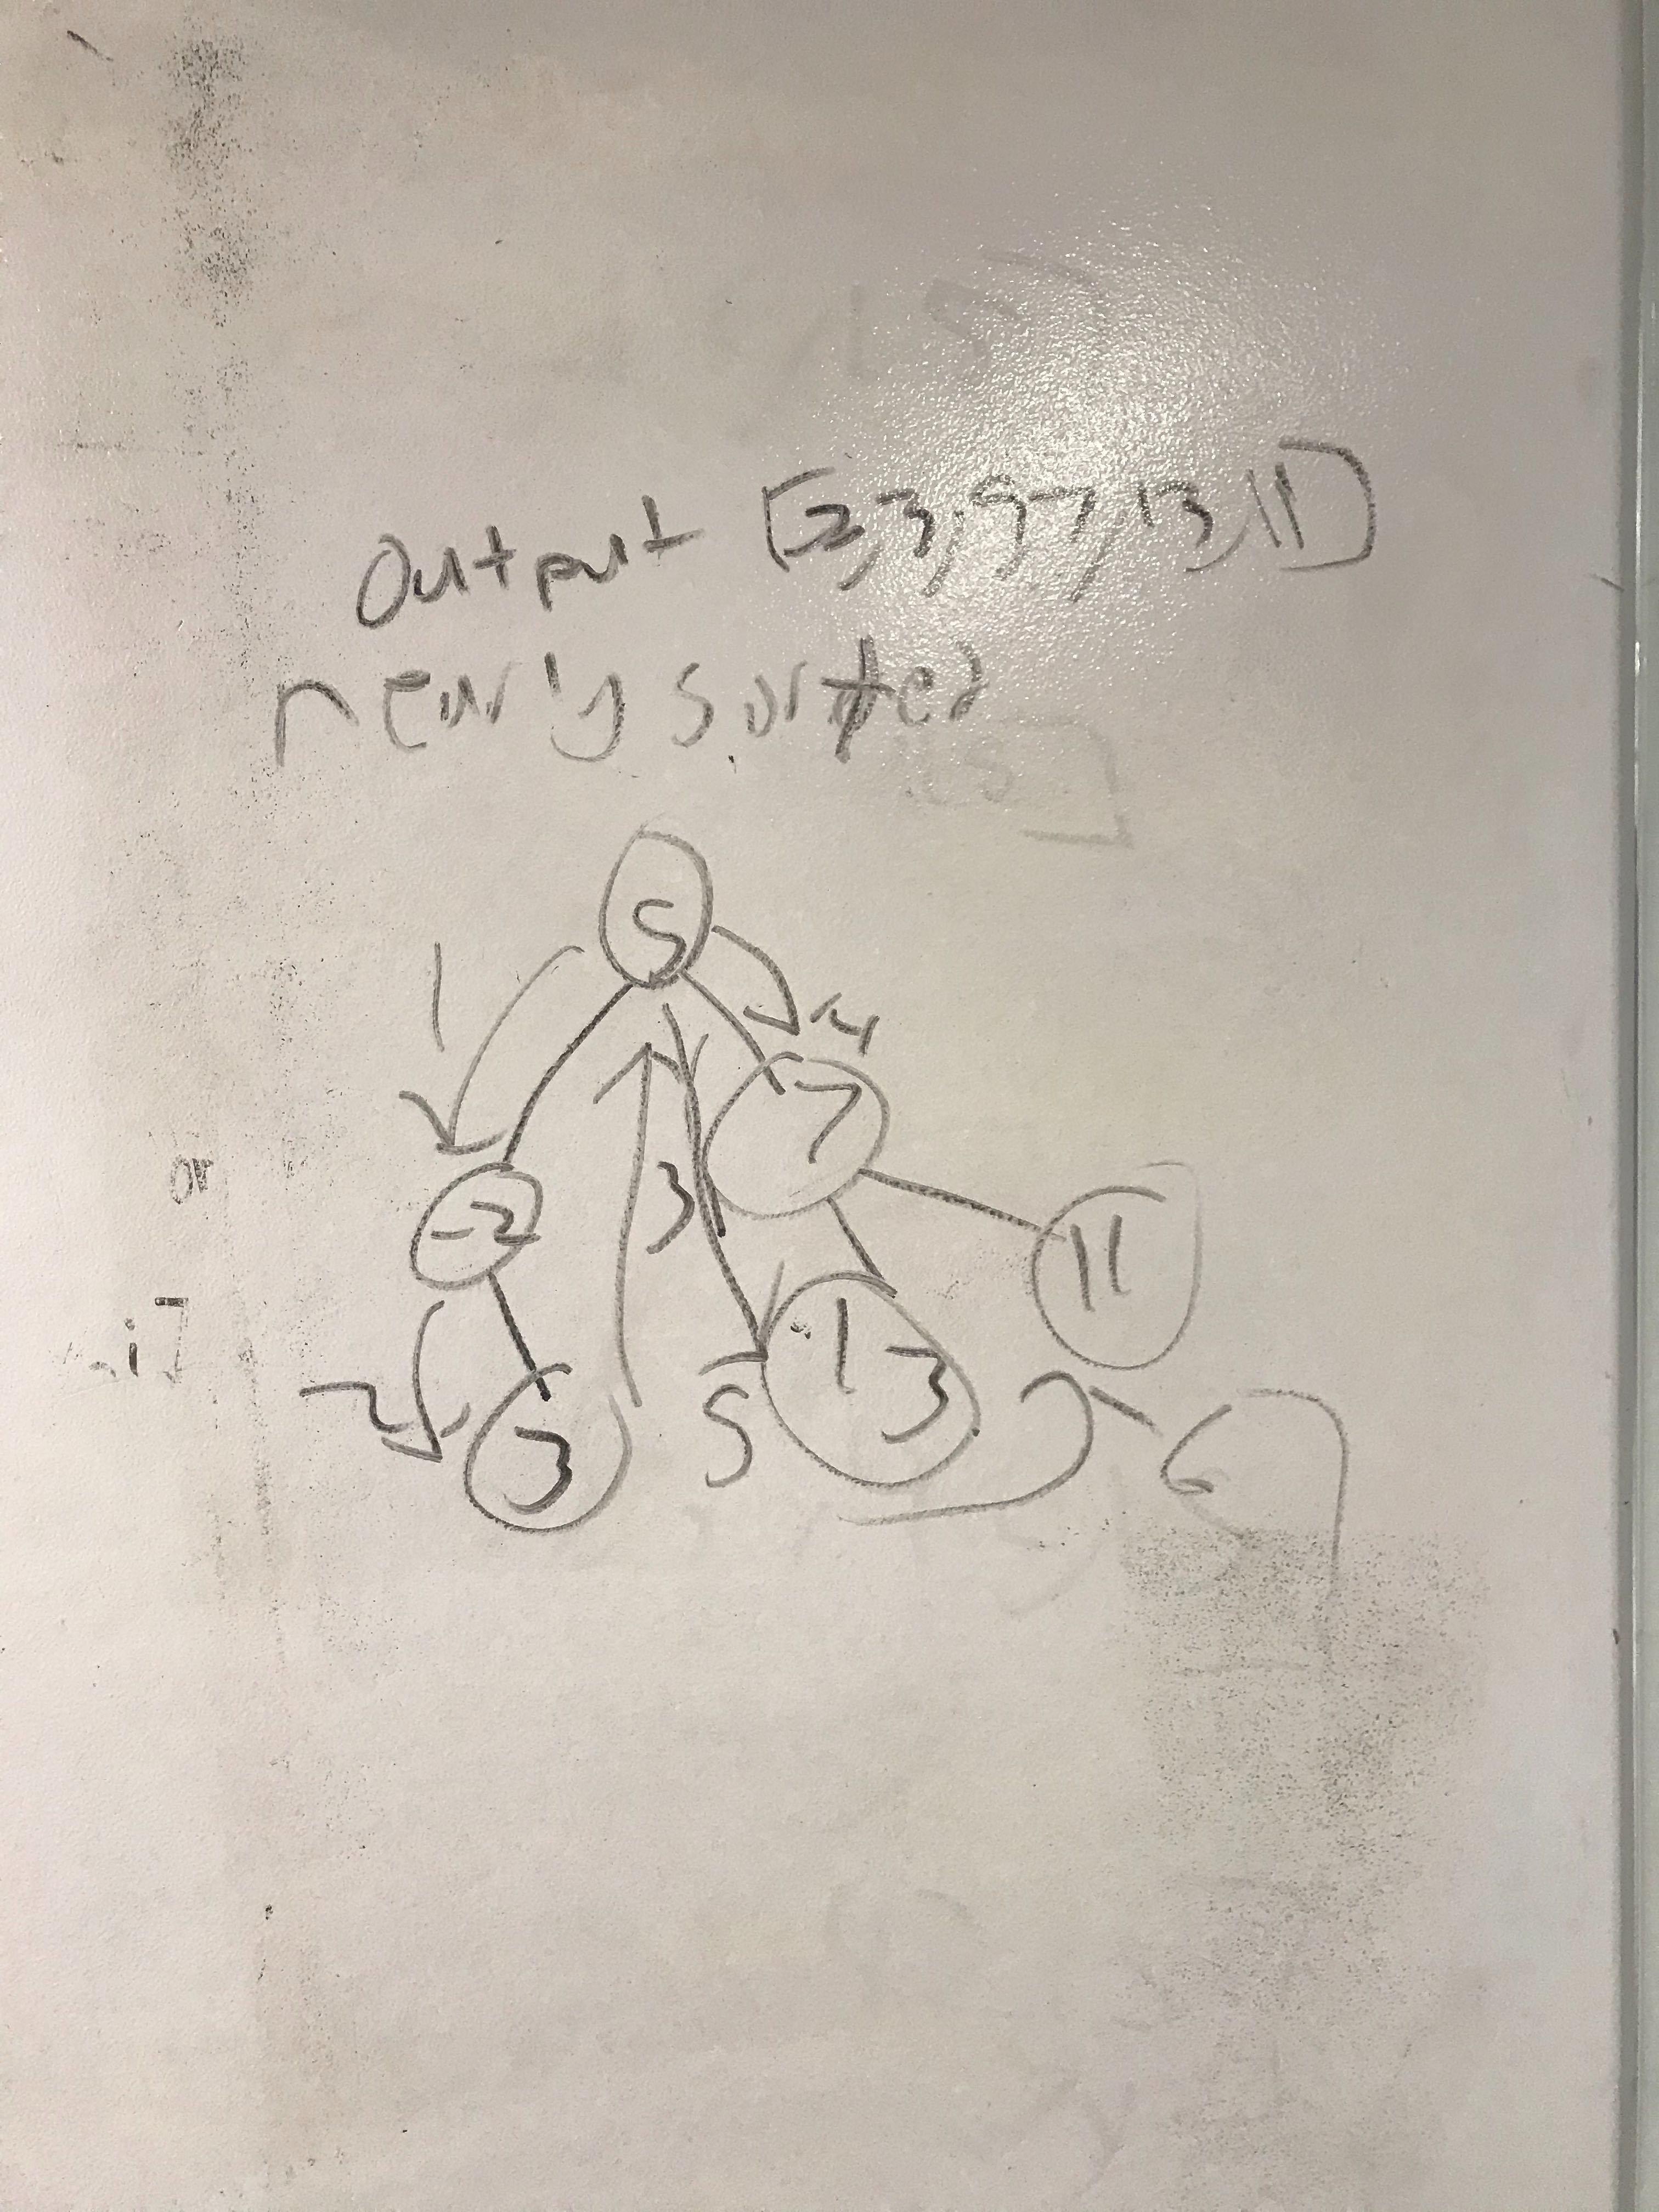 Output [-2,3,5,7,13,11]
nearly sorted
5
1
4
7
or
-2
3
11
13
2
3
5
6